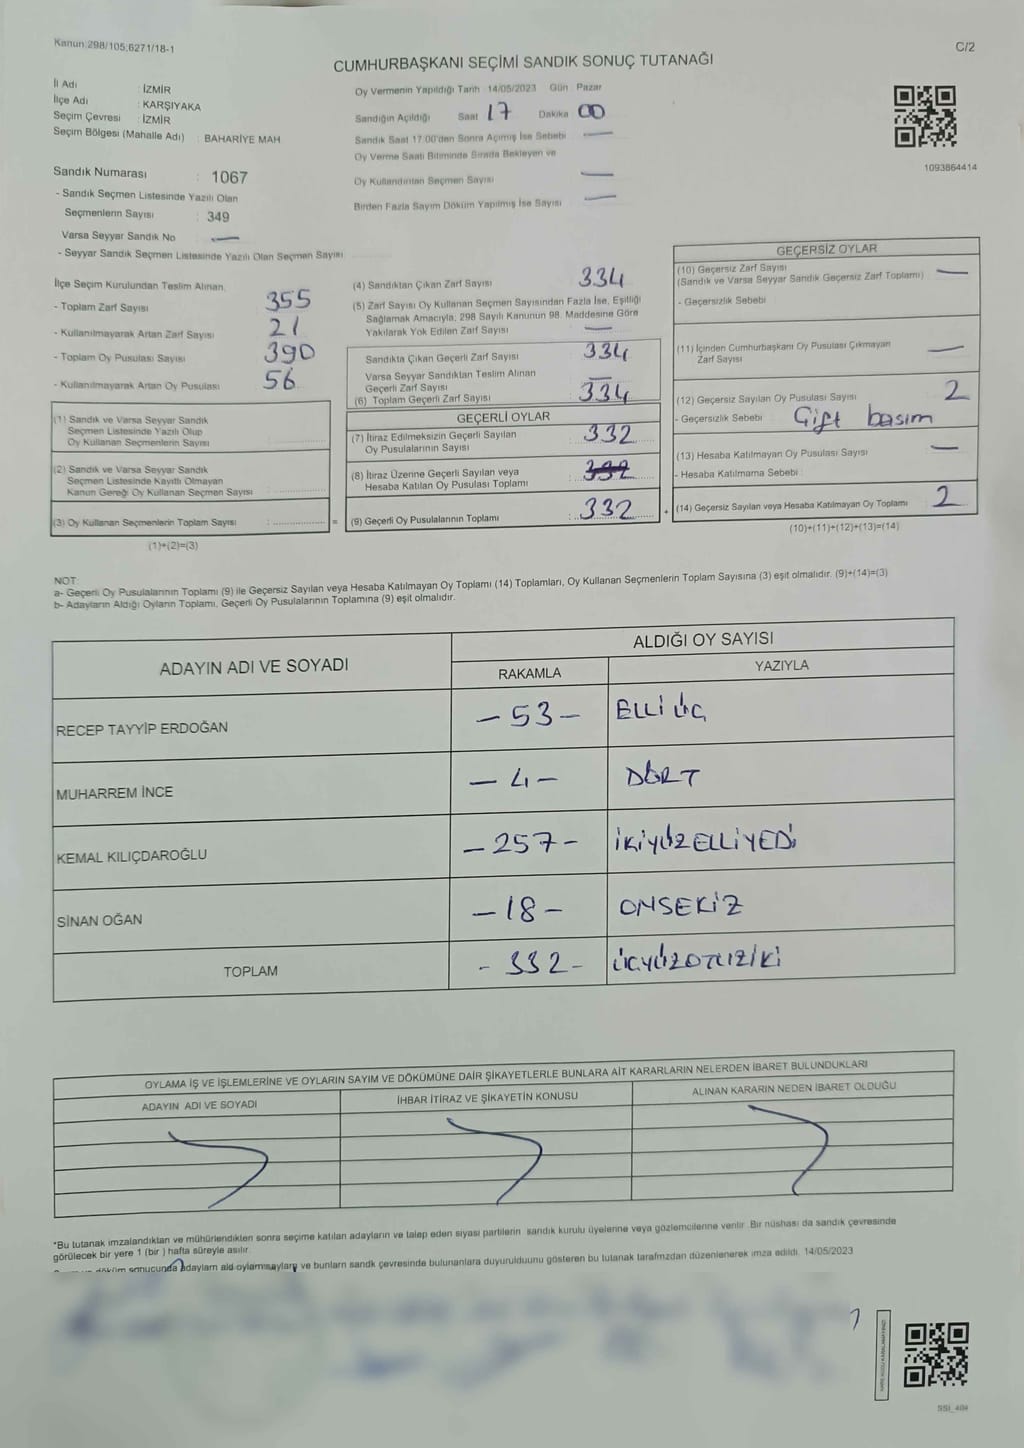 Kanun:298/105;6271/18-1
C/2
CUMHURBAŞKANI SEÇİMİ SANDIK SONUÇ TUTANAĞI
İl Adı : İZMİR
İlçe Adı : KARŞIYAKA
Seçim Çevresi : İZMİR
Seçim Bölgesi (Mahalle Adı) : BAHARİYE MAH
Oy Vermenin Yapıldığı Tarih :14/05/2023 Gün : Pazar
Sandığın Açıldığı Saat 17 Dakika 00
Sandık Saat 17.00'den Sonra Açılmış İse Sebebi —
Oy Verme Saati Bitiminde Sırada Bekleyen ve
Oy Kullandırılan Seçmen Sayısı —
Birden Fazla Sayım Döküm Yapılmış İse Sayısı —
1093864414
Sandık Numarası : 1067
- Sandık Seçmen Listesinde Yazılı Olan
Seçmenlerin Sayısı : 349
Varsa Seyyar Sandık No —
- Seyyar Sandık Seçmen Listesinde Yazılı Olan Seçmen Sayısı
İlçe Seçim Kurulundan Teslim Alınan
- Toplam Zarf Sayısı 355
- Kullanılmayarak Artan Zarf Sayısı 21
- Toplam Oy Pusulası Sayısı 390
- Kullanılmayarak Artan Oy Pusulası 56
(1) Sandık ve Varsa Seyyar Sandık
Seçmen Listesinde Yazılı Olup
Oy Kullanan Seçmenlerin Sayısı
(2) Sandık ve Varsa Seyyar Sandık
Seçmen Listesinde Kayıtlı Olmayan
Kanun Gereği Oy Kullanan Seçmen Sayısı
(3) Oy Kullanan Seçmenlerin Toplam Sayısı : =
(1)+(2)=(3)
(4) Sandıktan Çıkan Zarf Sayısı 334
(5) Zarf Sayısı Oy Kullanan Seçmen Sayısından Fazla İse, Eşitliği
Sağlamak Amacıyla, 298 Sayılı Kanunun 98. Maddesine Göre
Yakılarak Yok Edilen Zarf Sayısı —
Sandıkta Çıkan Geçerli Zarf Sayısı 334
Varsa Seyyar Sandıktan Teslim Alınan
Geçerli Zarf Sayısı —
(6) Toplam Geçerli Zarf Sayısı 334
GEÇERLİ OYLAR
(7) İtiraz Edilmeksizin Geçerli Sayılan
Oy Pusulalarının Sayısı : 332
(8) İtiraz Üzerine Geçerli Sayılan veya
Hesaba Katılan Oy Pusulası Toplamı : 332
(9) Geçerli Oy Pusulalarının Toplamı : 332 +
GEÇERSİZ OYLAR
(10) Geçersiz Zarf Sayısı
(Sandık ve Varsa Seyyar Sandık Geçersiz Zarf Toplamı) —
- Geçersizlik Sebebi
(11) İçinden Cumhurbaşkanı Oy Pusulası Çıkmayan
Zarf Sayısı —
(12) Geçersiz Sayılan Oy Pusulası Sayısı 2
- Geçersizlik Sebebi : Çift basım
(13) Hesaba Katılmayan Oy Pusulası Sayısı —
- Hesaba Katılmama Sebebi :
(14) Geçersiz Sayılan veya Hesaba Katılmayan Oy Toplamı 2
(10)+(11)+(12)+(13)=(14)
NOT:
a- Geçerli Oy Pusulalarının Toplamı (9) ile Geçersiz Sayılan veya Hesaba Katılmayan Oy Toplamı (14) Toplamları, Oy Kullanan Seçmenlerin Toplam Sayısına (3) eşit olmalıdır. (9)+(14)=(3)
b- Adayların Aldığı Oyların Toplamı, Geçerli Oy Pusulalarının Toplamına (9) eşit olmalıdır.
ADAYIN ADI VE SOYADI
ALDIĞI OY SAYISI
RAKAMLA YAZIYLA
RECEP TAYYİP ERDOĞAN – 53 – ELLİ ÜÇ
MUHARREM İNCE – 4 – DÖRT
KEMAL KILIÇDAROĞLU – 257 – İKİYÜZELLİYEDİ
SİNAN OĞAN – 18 – ONSEKİZ
TOPLAM - 332 - ÜÇYÜZOTUZİKİ
OYLAMA İŞ VE İŞLEMLERİNE VE OYLARIN SAYIM VE DÖKÜMÜNE DAİR ŞİKAYETLERLE BUNLARA AİT KARARLARIN NELERDEN İBARET BULUNDUKLARI
ADAYIN ADI VE SOYADI İHBAR İTİRAZ VE ŞİKAYETİN KONUSU ALINAN KARARIN NEDEN İBARET OLDUĞU
*Bu tutanak imzalandıktan ve mühürlendikten sonra seçime katılan adayların ve talep eden siyasi partilerin sandık kurulu üyelerine veya gözlemcilerine verilir. Bir nüshası da sandık çevresinde
görülecek bir yere 1 (bir ) hafta süreyle asılır.
adayların ve bunların sandk çevresinde bulunanlara duyurulduunu gösteren bu tutanak tarafmzdan düzenlenerek imza edildi. 14/05/2023